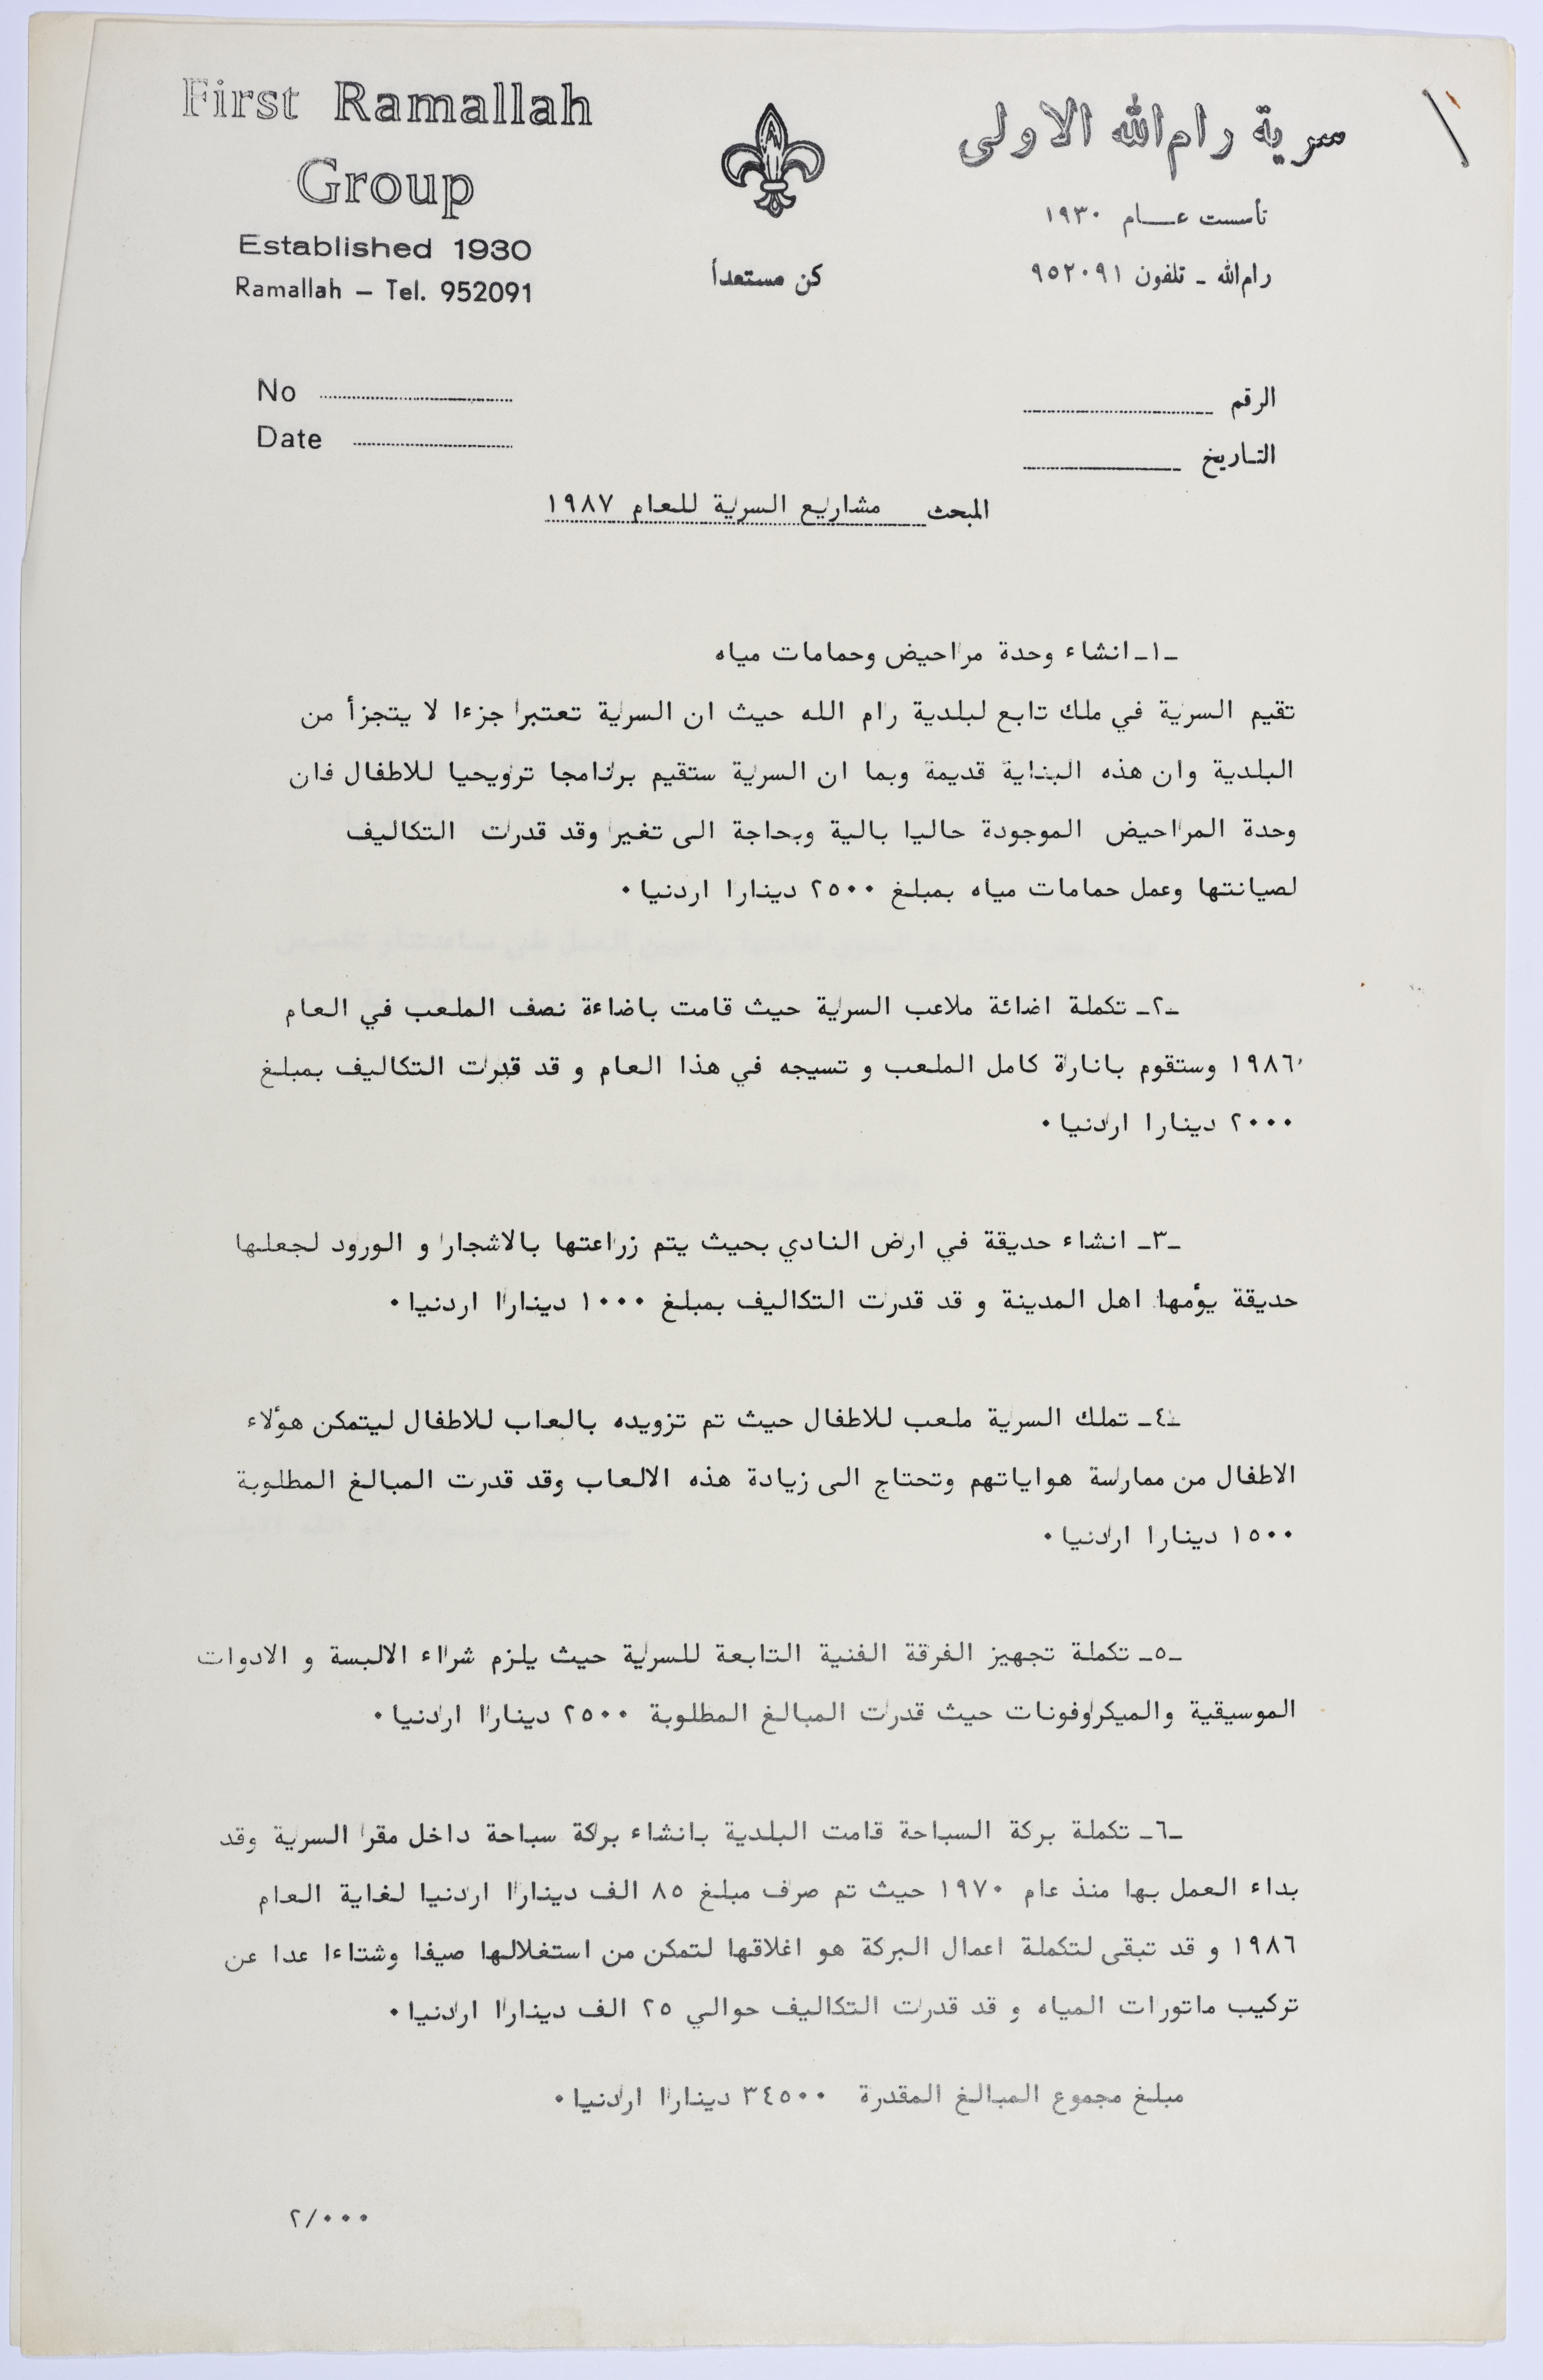 First Ramallah
Group
Established 1930
Ramallah – Tel. 952091
كن مستعداً
سرية رام الله الاولى
تأسست عـــام ١٩٣٠
رام الله ـ تلفون ٩٥٢٠٩١
No
Date
الرقم
التاريخ
المبحث مشاريع السرية للعام ١٩٨٧
ـ١ـ انشاء وحدة مراحيض وحمامات مياه
تقيم السرية في ملك تابع لبلدية رام الله حيث ان السرية تعتبر جزءا لا يتجزأ من
البلدية وان هذه البناية قديمة وبما ان السرية ستقيم برنامجا ترويحيا للاطفال فان
وحدة المراحيض الموجودة حاليا بالية وبحاجة الى تغير وقد قدرت التكاليف
لصيانتها وعمل حمامات مياه بمبلغ ٢٥٠٠ دينارا اردنيا٠
ـ٢ـ تكملة اضائة ملاعب السرية حيث قامت باضاءة نصف الملعب في العام
١٩٨٦ وستقوم بانارة كامل الملعب و تسيجه في هذا العام و قد قدرت التكاليف بمبلغ
٢٠٠٠ دينارا اردنيا٠
ـ٣ـ انشاء حديقة في ارض النادي بحيث يتم زراعتها بالاشجار و الورود لجعلها
حديقة يؤمها اهل المدينة و قد قدرت التكاليف بمبلغ ١٠٠٠ دينارا اردنيا٠
ـ٤ـ تملك السرية ملعب للاطفال حيث تم تزويده بالعاب للاطفال ليتمكن هؤلاء
الاطفال من ممارسة هواياتهم وتحتاج الى زيادة هذه الالعاب وقد قدرت المبالغ المطلوبة
١٥٠٠ دينارا اردنيا٠
ـ٥ـ تكملة تجهيز الفرقة الفنية التابعة للسرية حيث يلزم شراء الالبسة و الادوات
الموسيقية والميكروفونات حيث قدرت المبالغ المطلوبة ٢٥٠٠ دينارا اردنيا٠
ـ٦ـ تكملة بركة السباحة قامت البلدية بانشاء بركة سباحة داخل مقر السرية وقد
بداء العمل بها منذ عام ١٩٧٠ حيث تم صرف مبلغ ٨٥ الف دينارا اردنيا لغاية العام
١٩٨٦ و قد تبقى لتكملة اعمال البركة هو اغلاقها لتمكن من استغلالها صيفا وشتاءا عدا عن
تركيب ماتورات المياه و قد قدرت التكاليف حوالي ٢٥ الف دينارا اردنيا٠
مبلغ مجموع المبالغ المقدرة ٣٤٥٠٠ دينارا اردنيا٠
٢/٠٠٠